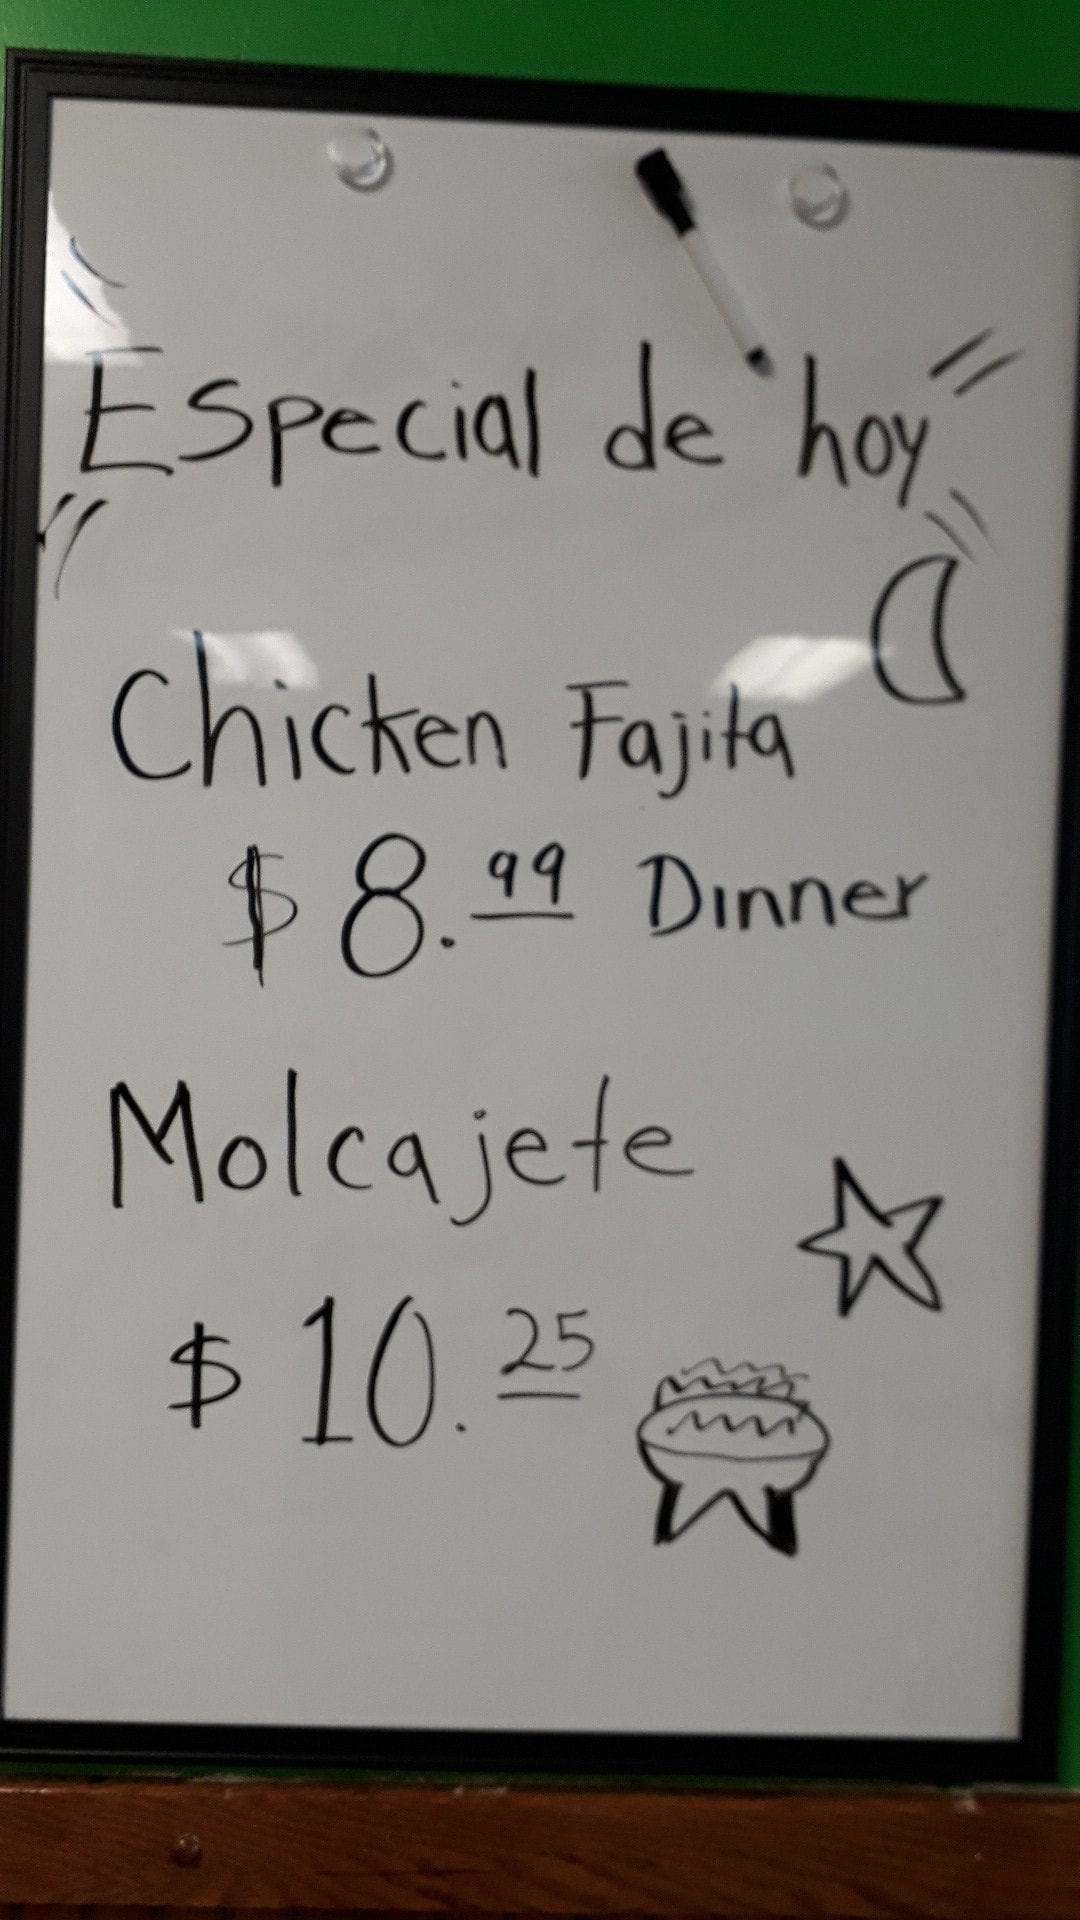 Especial de hoy
Chicken Fajita
$8.99 Dinner
Molcajete
$10.25